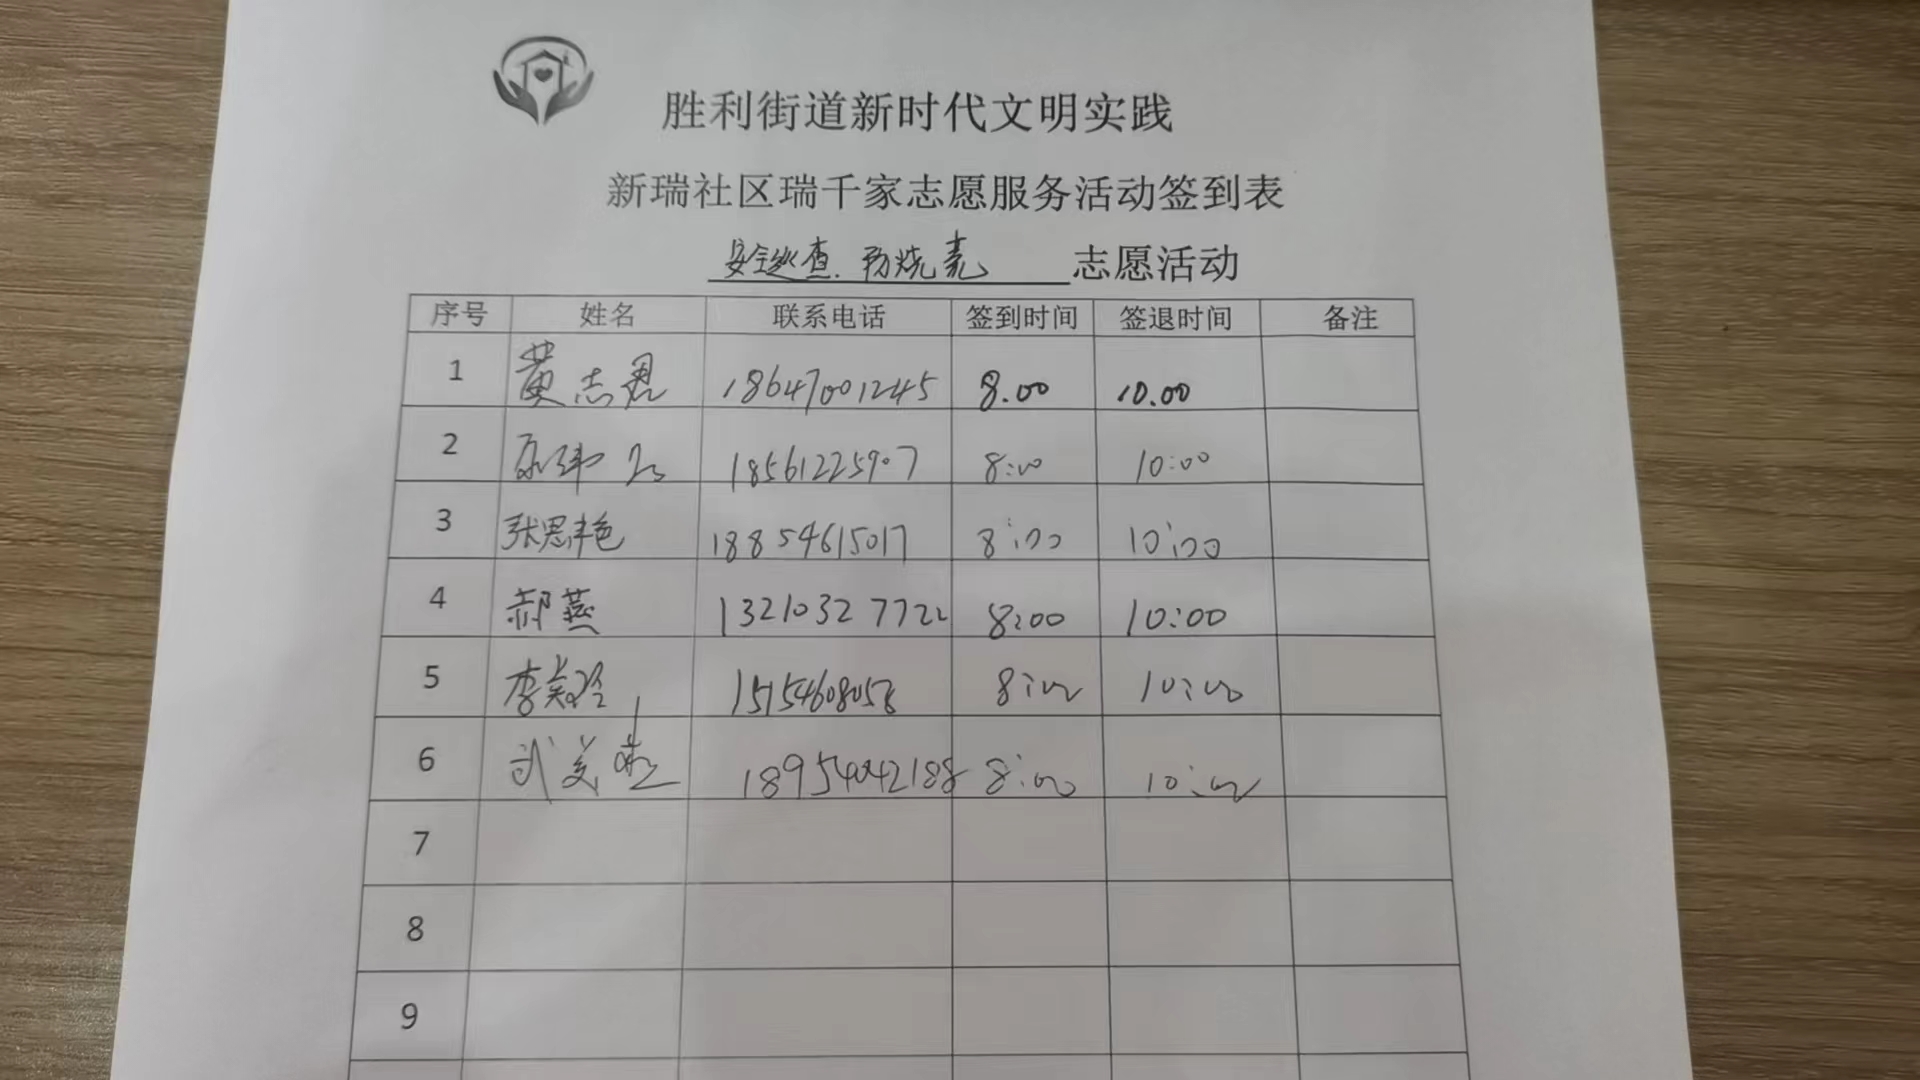 胜利街道新时代文明实践
新瑞社区瑞千家志愿服务活动签到表
安全巡查. 志愿活动
序号 姓名 联系电话 签到时间 签退时间 备注
1 黄志君 18647001245 8.00 10.00
2 18561225907 8:00 10:00
3 张思艳 18854615017 8:00 10:00
4 郝燕 13210327722 8:00 10:00
5 李 15154608058 8:00 10:00
6 武美 18954042188 8:00 10:00
7
8
9